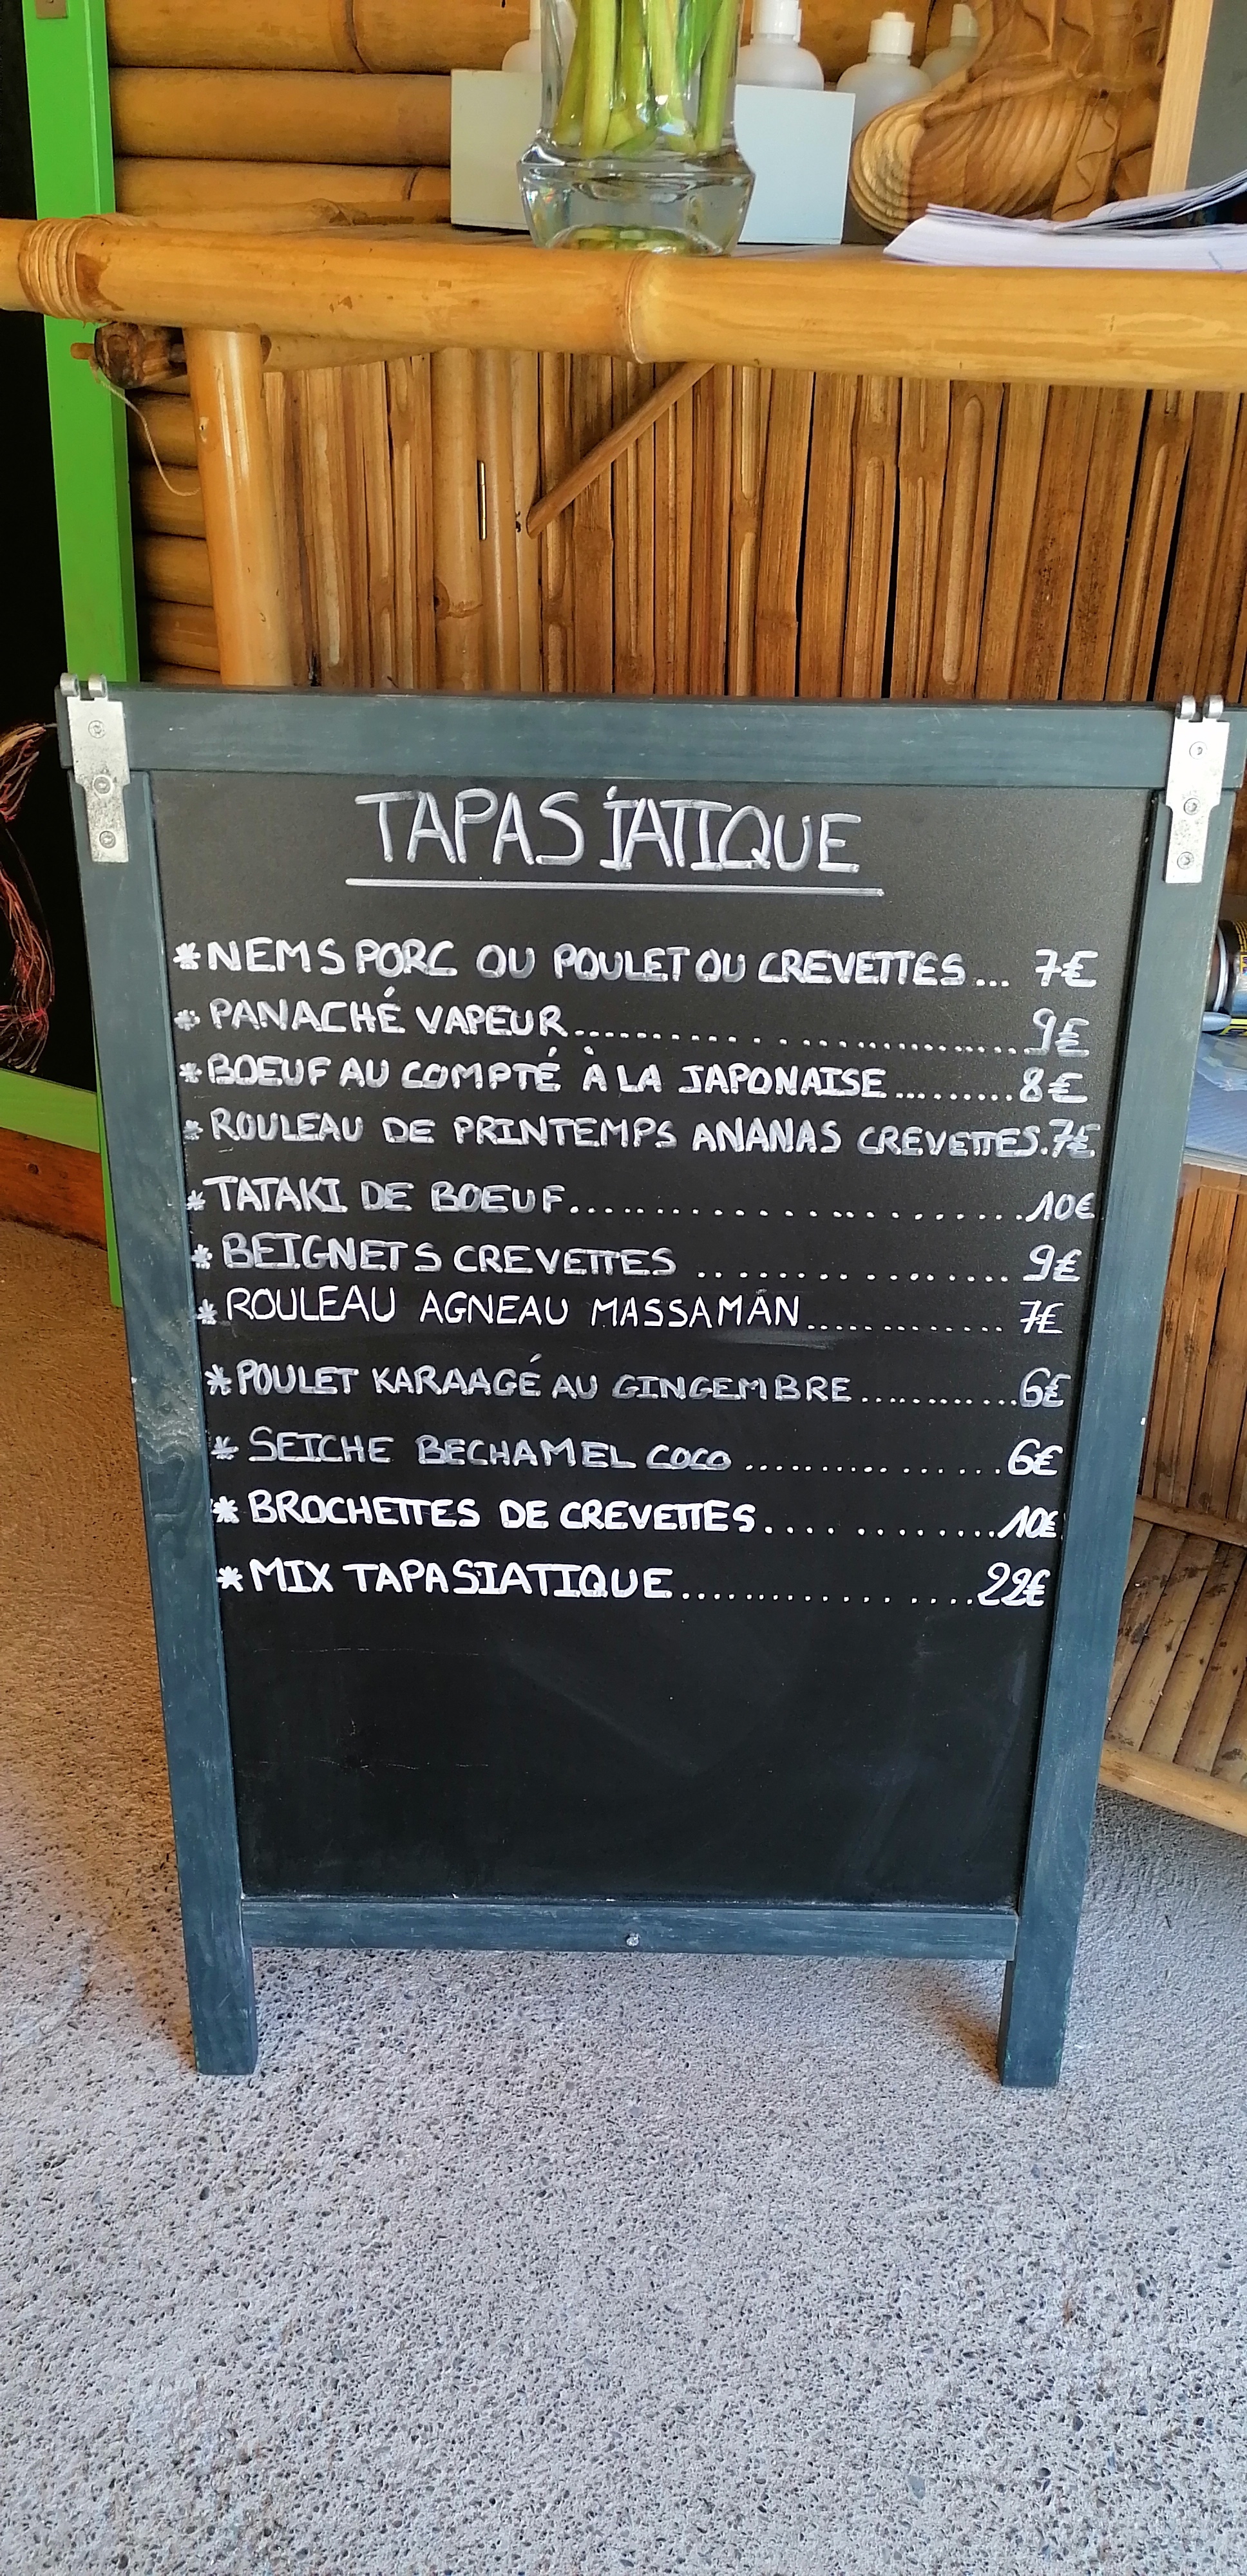 TAPASIATIQUE
*NEMS PORC OU POULET OU CREVETTES... 7€
*PANACHÉ VAPEUR.............................. 9€
*BOEUF AU COMPTÉ À LA JAPONAISE.......... 8€
*ROULEAU DE PRINTEMPS ANANAS CREVETTES.7€
*TATAKI DE BOEUF.............................10€
*BEIGNETS CREVETTES .................... 9€
*ROULEAU AGNEAU MASSAMAN............... 7€
*POULET KARAAGÉ AU GINGEMBRE............6€
*SEICHE BECHAMEL COCO ..................6€
*BROCHETTES DE CREVETTES...............10€
*MIX TAPASIATIQUE.......................22€